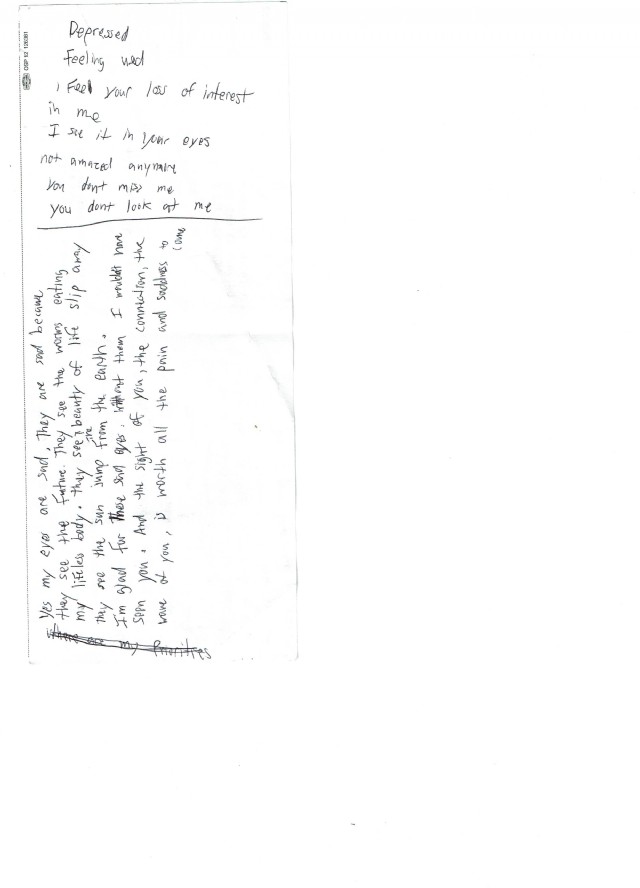 Depressed
Feeling used
I Feel your loss of interest
in me
I see it in your eyes
not amazed anymore
you dont miss me
you dont look at me
Yes my eyes are sad, They are sad because
they see the future. They see the worms eating
my lifeless body. they see the beauty of life slip away
they see the sun jump from the earth.
I'm glad for these sad eyes. without them I wouldnt have
seen you. And the sight of you, the connection, the
wave of you, is worth all the pain and saddness to
come
Where are my Priorities
OSP 52 126381